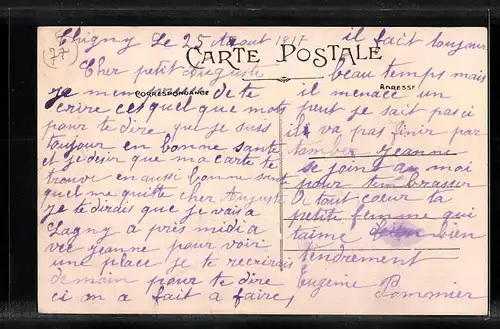 (77)
Thigny Le 25 Aout 1915
CARTE POSTALE
CORRESPONDANCE
ADRESSE
Cher petit Auguste
je m'empresse de te
écrire ces quel que mots
pour te dire que je suis
toujour en bonne sante
et je desir que ma carte te
trouve en aussi bonne santé
quel me quitte cher Auguste
je te dirais que je vais a
Lagny a près midi a
vec jeanne pour voir
une place je te recrirais
demain pour te dire
ci on a fait a faire,
il fait toujour
beau temps mais
il menace un
peut je sait pas ci
il va pas finir par
tomber jeanne
se joint a moi
pour t'embrasser
de tout coeur ta
petite femme qui
t'aime bien
tendrement
Eugénie Pommier